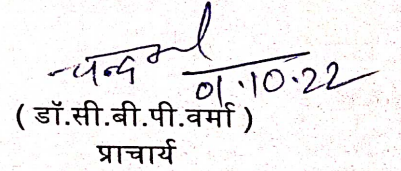 01.10.22
( डॉ.सी.बी.पी.वर्मा )
प्राचार्य